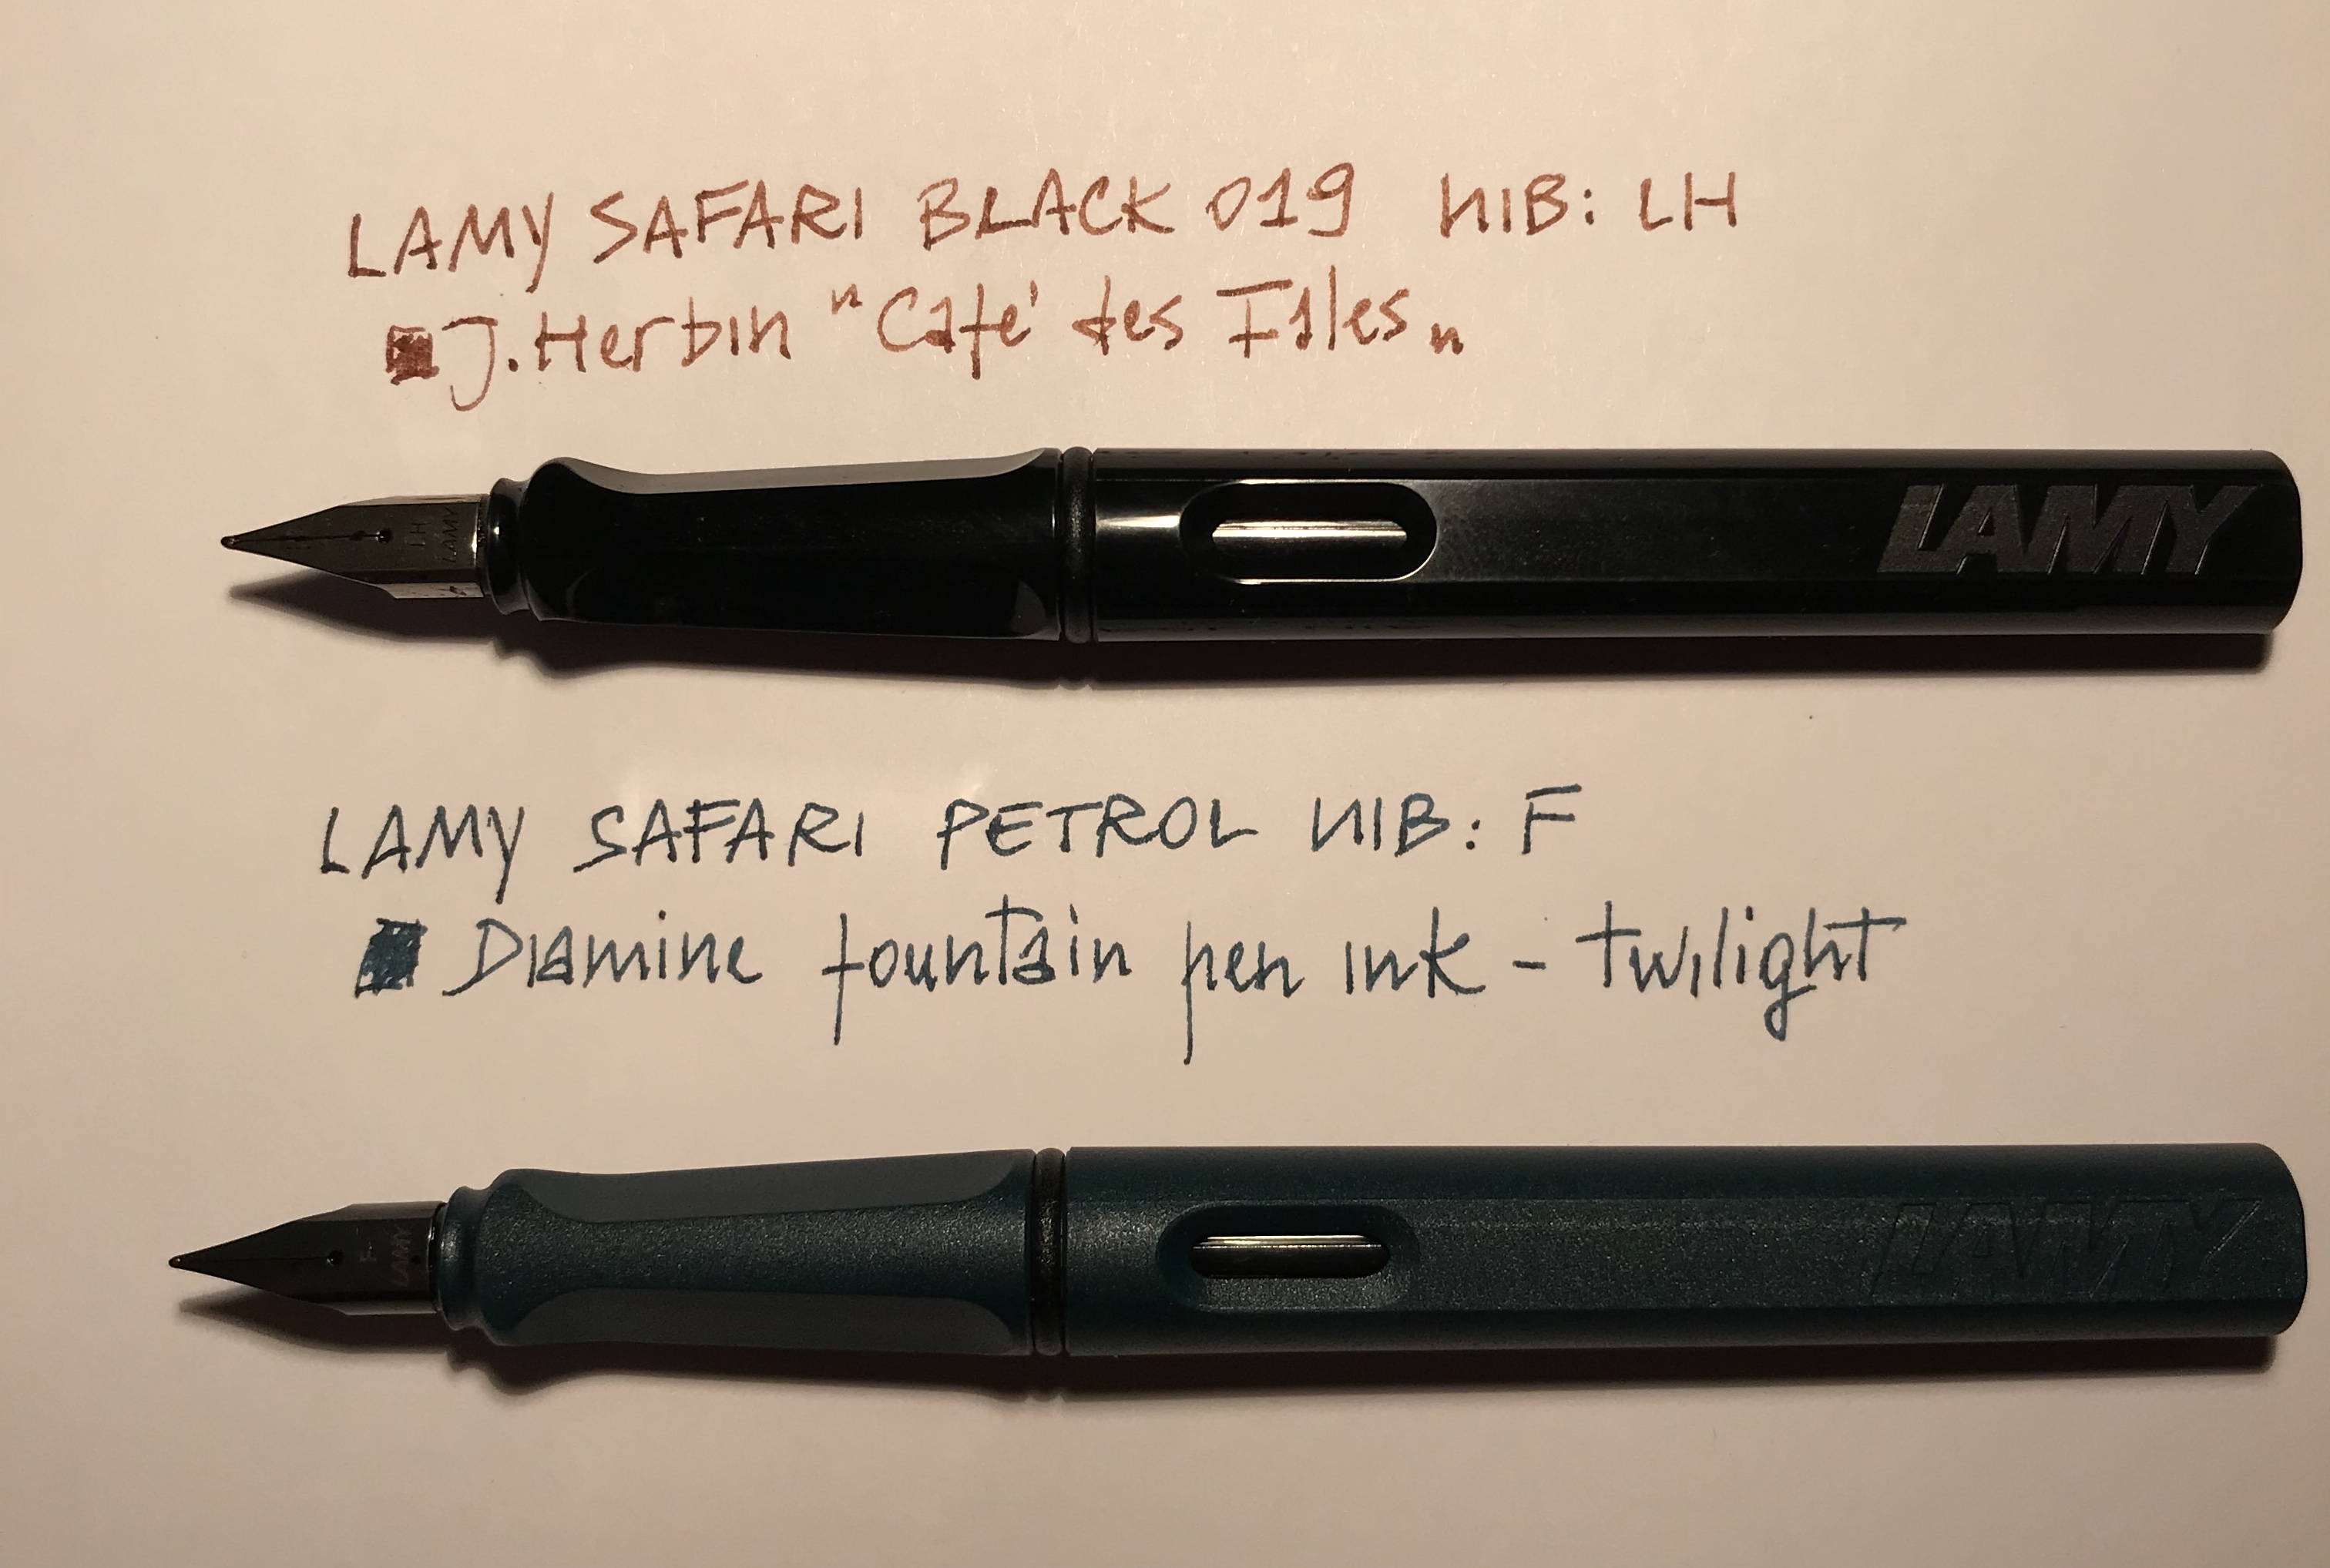 LAMY SAFARI BLACK 019 NIB: LH
J. Herbin "Café des Isles"
LH
LAMY
LAMY
LAMY SAFARI PETROL NIB: F
Diamine fountain pen ink - twilight
F
LAMY
LAMY